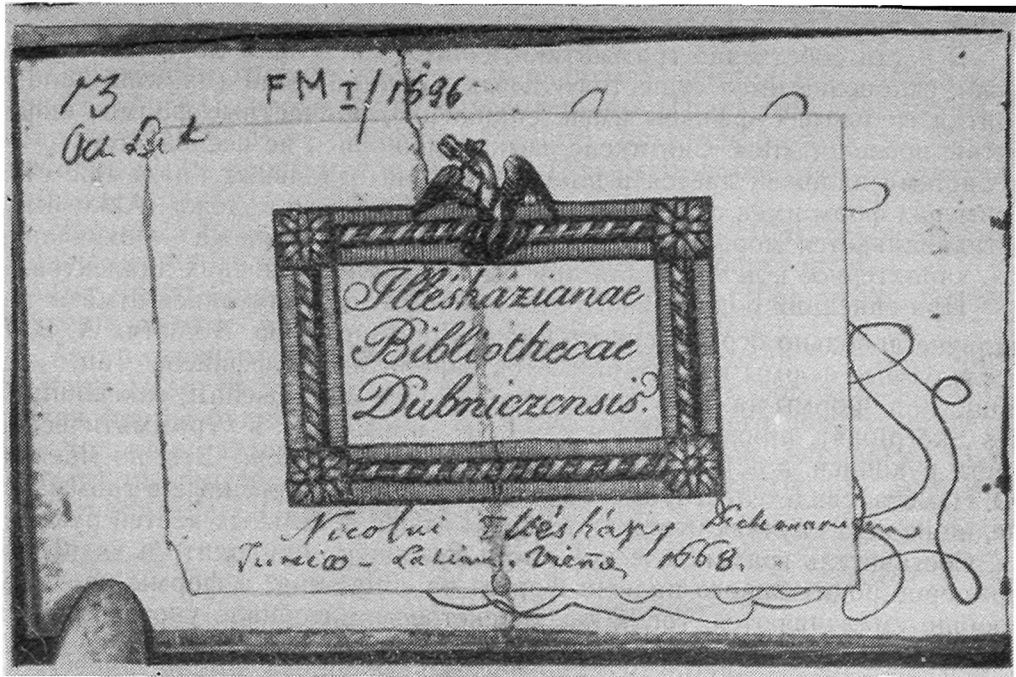 73
FM I/1696
Oct. Lat
Illésházianae
Bibliothecae
Dubniczensis.
Nicolai Illésházy Dictionarium
Turcico-Latinum. Vieñæ, 1668.